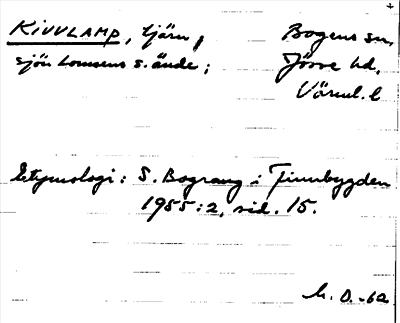 KIVVLAMP, tjärn,
Bogens sn,
sjön Lomsens s. ände;
Jösse hd,
Värml. l
Etymologi: S. Bograng i Finnbygden
1955:2, sid. 15.
O. -62